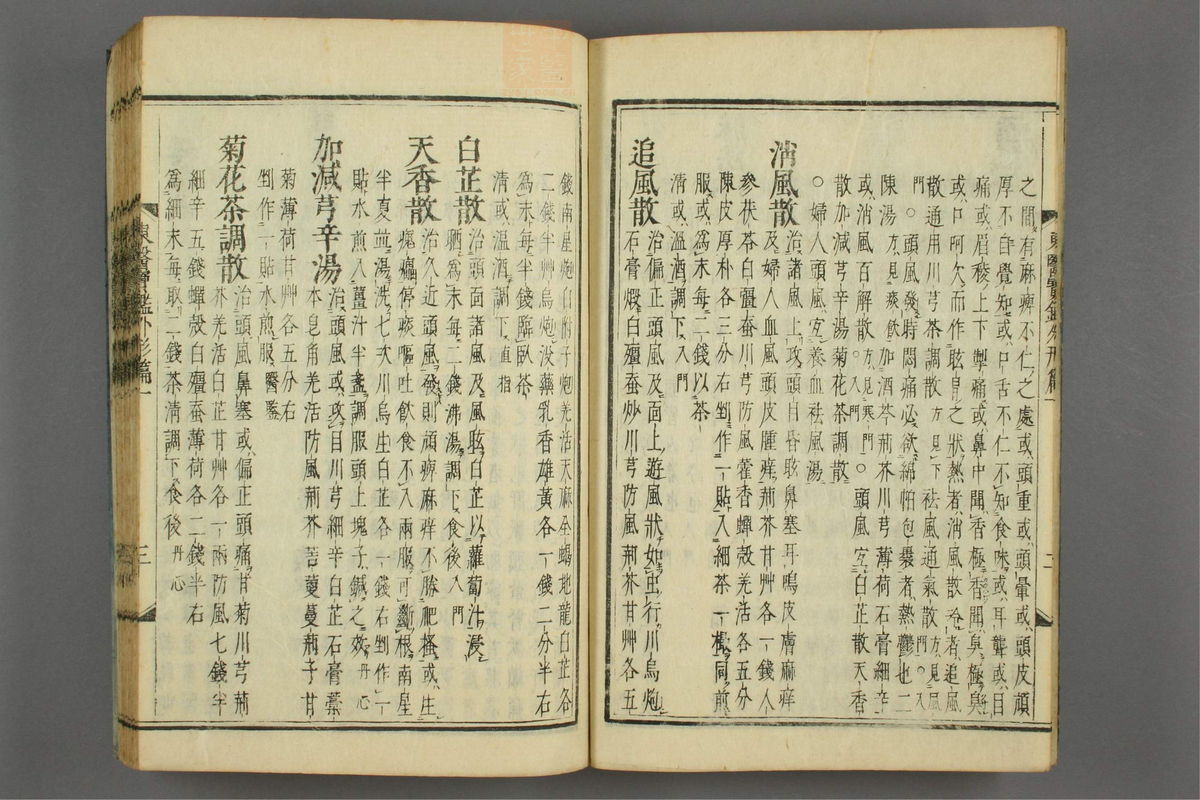 之間有麻痺不仁之處或頭重或頭暈或頭皮頑
厚不自覺知或口舌不仁不知食味或耳聾或目
痛或眉稜上下掣痛或鼻中聞香極香聞臭極臭
或口呵欠而作眩冒之狀熱者消風散冷者追風
散通用川芎茶調散方見下祛風通氣散方見風
門○頭風發時悶痛必欲綿帕包裹者熱鬱也二
陳湯方見痰飮加酒芩荊芥川芎薄荷石膏細辛
或消風百解散方見寒門○頭風宜白芷散天香
散加減芎辛湯菊花茶調散
○婦人頭風宜養血祛風湯
消風散
治諸風上攻頭目昏眩鼻塞耳鳴皮膚麻痒
及婦人血風頭皮腫痒荊芥甘艸各一錢人
參茯苓白殭蚕川芎防風藿香蟬殼羌活各五分
陳皮厚朴各三分右剉作一貼入細茶一撮同煎
服或爲末每二錢以茶
淸或溫酒調下入門
追風散
治偏正頭風及面上遊風狀如虫行川烏炮
石膏煆白殭蚕炒川芎防風荊芥甘艸各五
錢南星炮白附子炮羌活天麻全蝎地龍白芷各
二錢半艸烏炮沒藥乳香雄黃各一錢二分半右
爲末每半錢臨臥茶
淸或溫酒調下直指
白芷散
治頭面諸風及風眩白芷以蘿蔔汁浸
晒爲末每二錢沸湯調下食後入門
天香散
治久近頭風發則頑痺麻痒不勝肥搔或生
瘣㿔停痰嘔吐飮食不入兩服可斷根南星
半夏並湯洗七次川烏生白芷各一錢右剉作一
貼水煎入薑汁半盞調服頭上塊子鍼之效丹心
加減芎辛湯
治頭風或攻目川芎細辛白芷石膏藁
本皂角羌活防風荊芥苦蔓蔓荊子甘
菊薄荷甘艸各五分右
剉作一貼水煎服醫鑑
菊花茶調散
治頭風鼻塞或偏正頭痛甘菊川芎荊
芥羌活白芷甘艸各一兩防風七錢半
細辛五錢蟬殼白殭蚕薄荷各二錢半右
爲細末每取二錢茶淸調下食後丹心
東醫寶鑑外形篇一
三